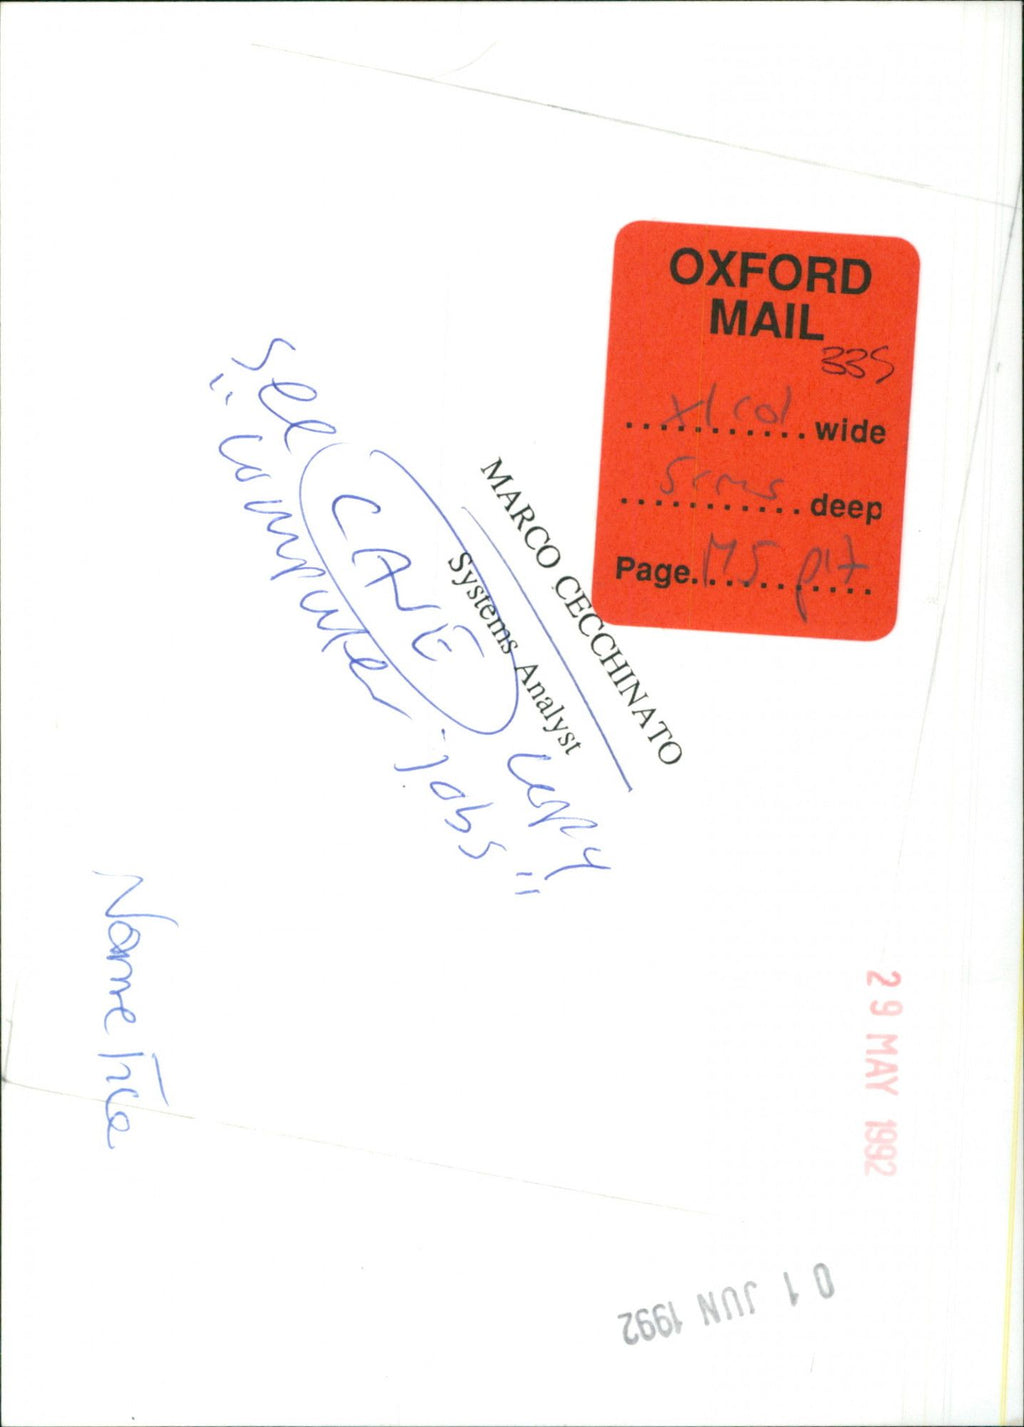 OXFORD
MAIL
335
x1 col wide
5cms deep
Page M5 pit
MARCO CECCHINATO
Systems Analyst
see CANE copy
"computer jobs"
29 MAY 1992
01 JUN 1992